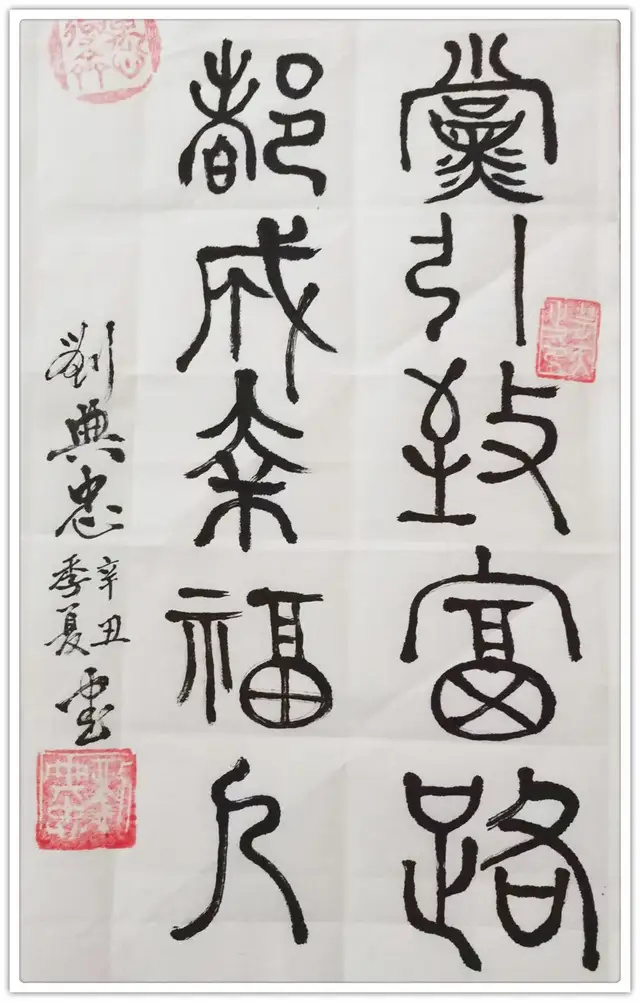 黨引致富路
都成幸福人
劉典忠
辛丑
季夏
書